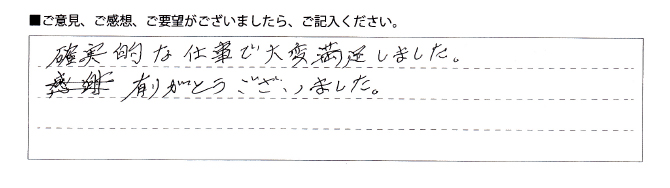 ■ご意見、ご感想、ご要望がございましたら、ご記入ください。
確実的な仕事で大変満足しました。
有りがとうございました。